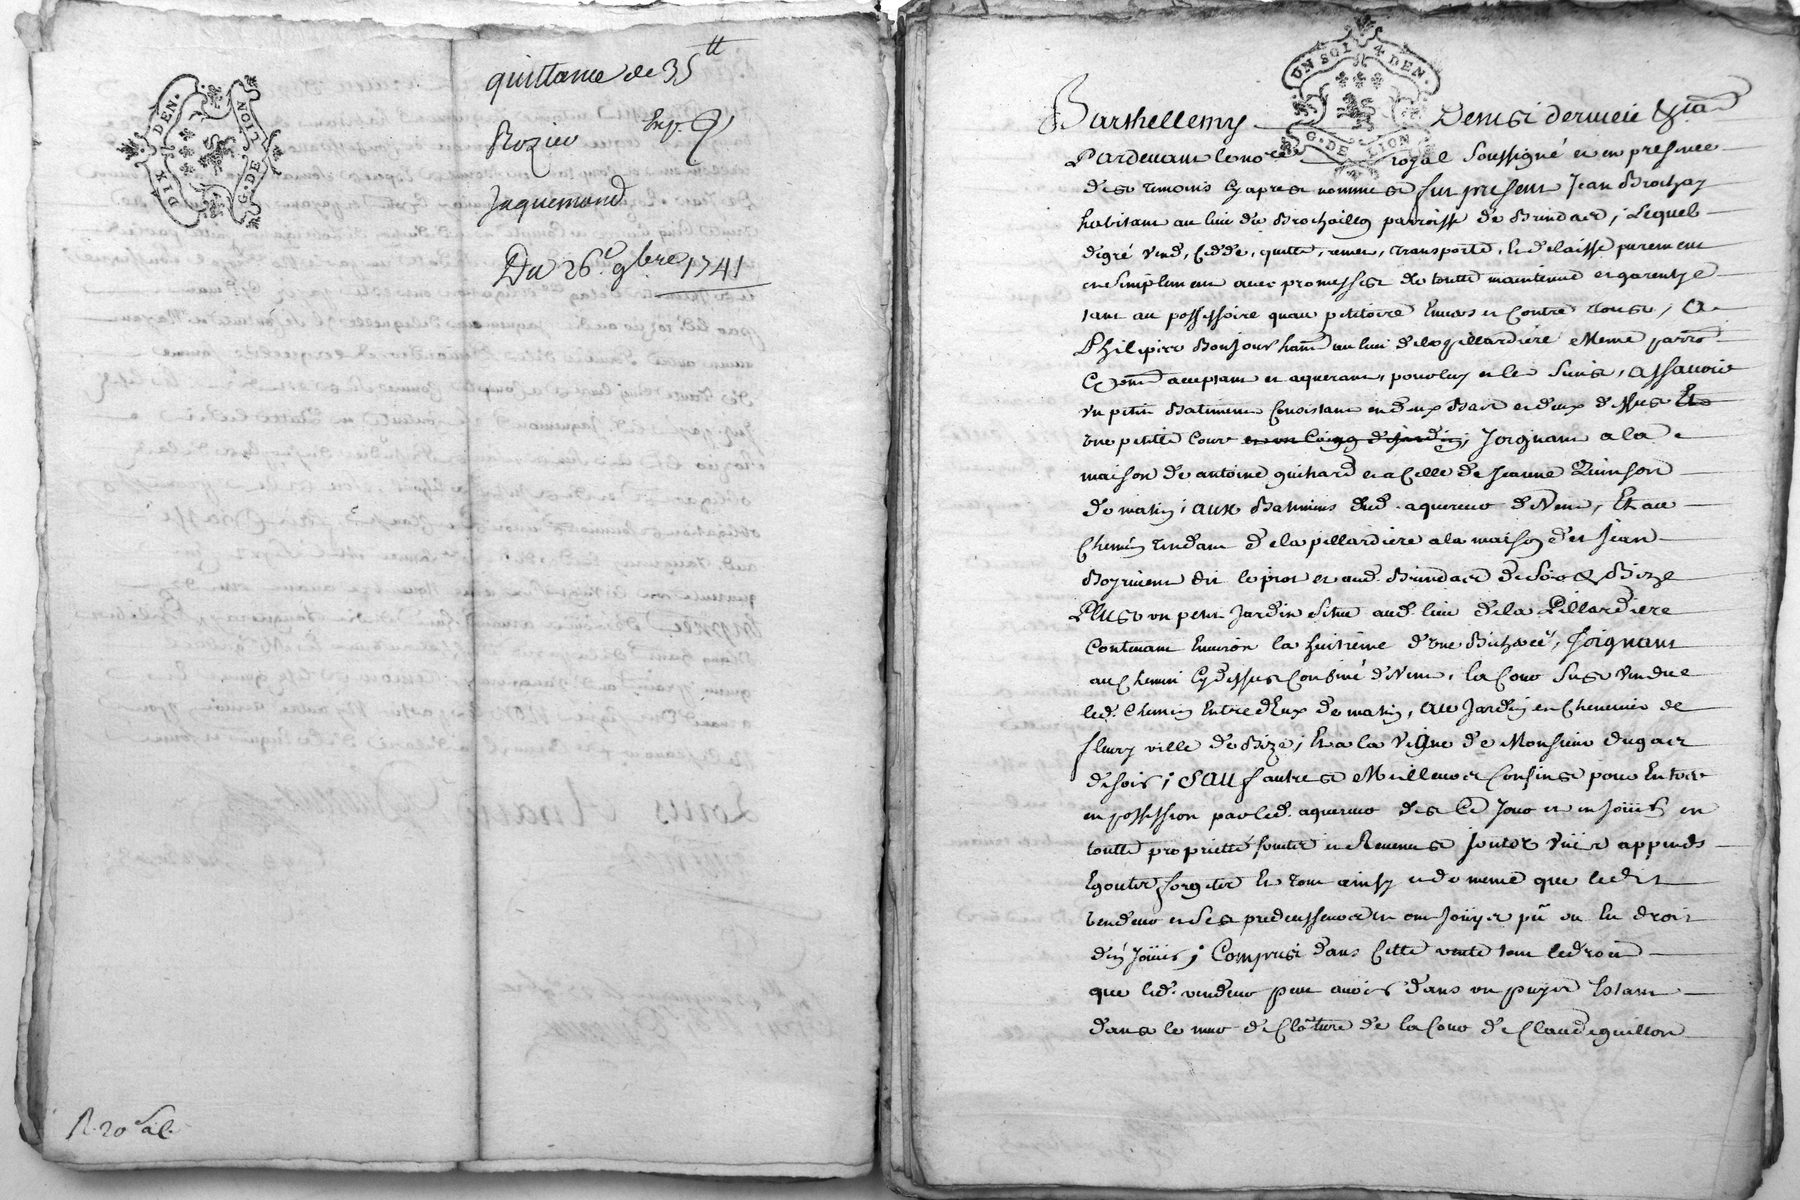 quittance de 35tt
Rozier Exp.
Jaquemond
Du 26e 9bre 1741
DIX DEN.
G. DE LION
R. 20
UN SOL 4 DEN.
G. DE LION
Barthellemy
Pardevant le nore royal soussigné et en presence
des temoins cy apres nommes fut present Jean Brochay
habitant au lieu de Brochailles parroisse de Brindas, lequel
de gré vend, cedde, quitte, remet, transporte, et delaisse purement
et simplement avec promesses de toutte maintenue et garentye
tant au possessoire quau petitoire Envers et Contre tous, A
Philipes Bonjour hant au lieu de la pillardiere Meme parro
Cy pnt acceptant et aquerant, pour luy et les siens, assavoir
un petit Batiment Consistant en deux Bas et deux dessus Et
une petite Cour Joignant a la
maison de antoine guihard et a Celle de Jeanne Quinson
de matin, aux Batimens dud. aquereur de Vent, Et au
Chemin tendant de la pillardiere a la maison de Jean
dit le piot et aud. Brindas de soir & Bize
PLUS un petit Jardin situé aud. lieu de la Pillardiere
Contenant Environ la huitieme d'une Bicheree, Joignant
au Chemin Cy dessus Confiné de Vent, la Cour sus vendue
led. Chemin Entre deux de matin, au Jardin et Chenevier de
fleury ville de Bize, Et a la Vigne de Monsieur dugas
de soir, SAUf autres Meilleurs Confins pour Entrer
en possession par led. aquereur des Ce Jour et en Joüir en
toutte proprietté fruits et Revenus Joutes Vües appends
Egouts forgets Et tout ainsy et de meme que ledit
vendeur et Ses predecesseurs en ont Joüy et pû ou eu droit
d'en Joüir, Compris dans Cette vente tout le droit
que led. vendeur peut avoir dans un puys Estant
dans le mur de Clôture de la Cour de Claude guillon